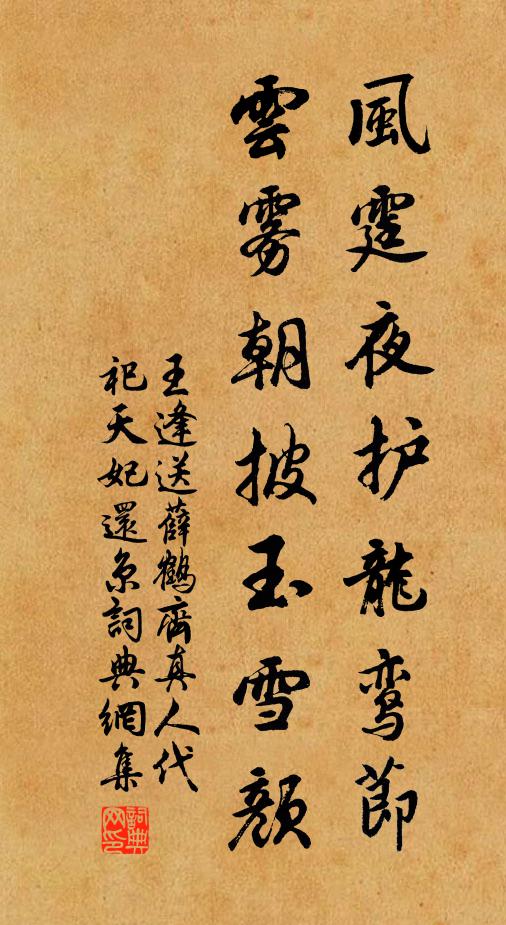 風霆夜护龍鸾節
雲雾朝披玉雪顔
王逢送薛鶴齊真人代
祀天妃還京詞典網集
詞典网印